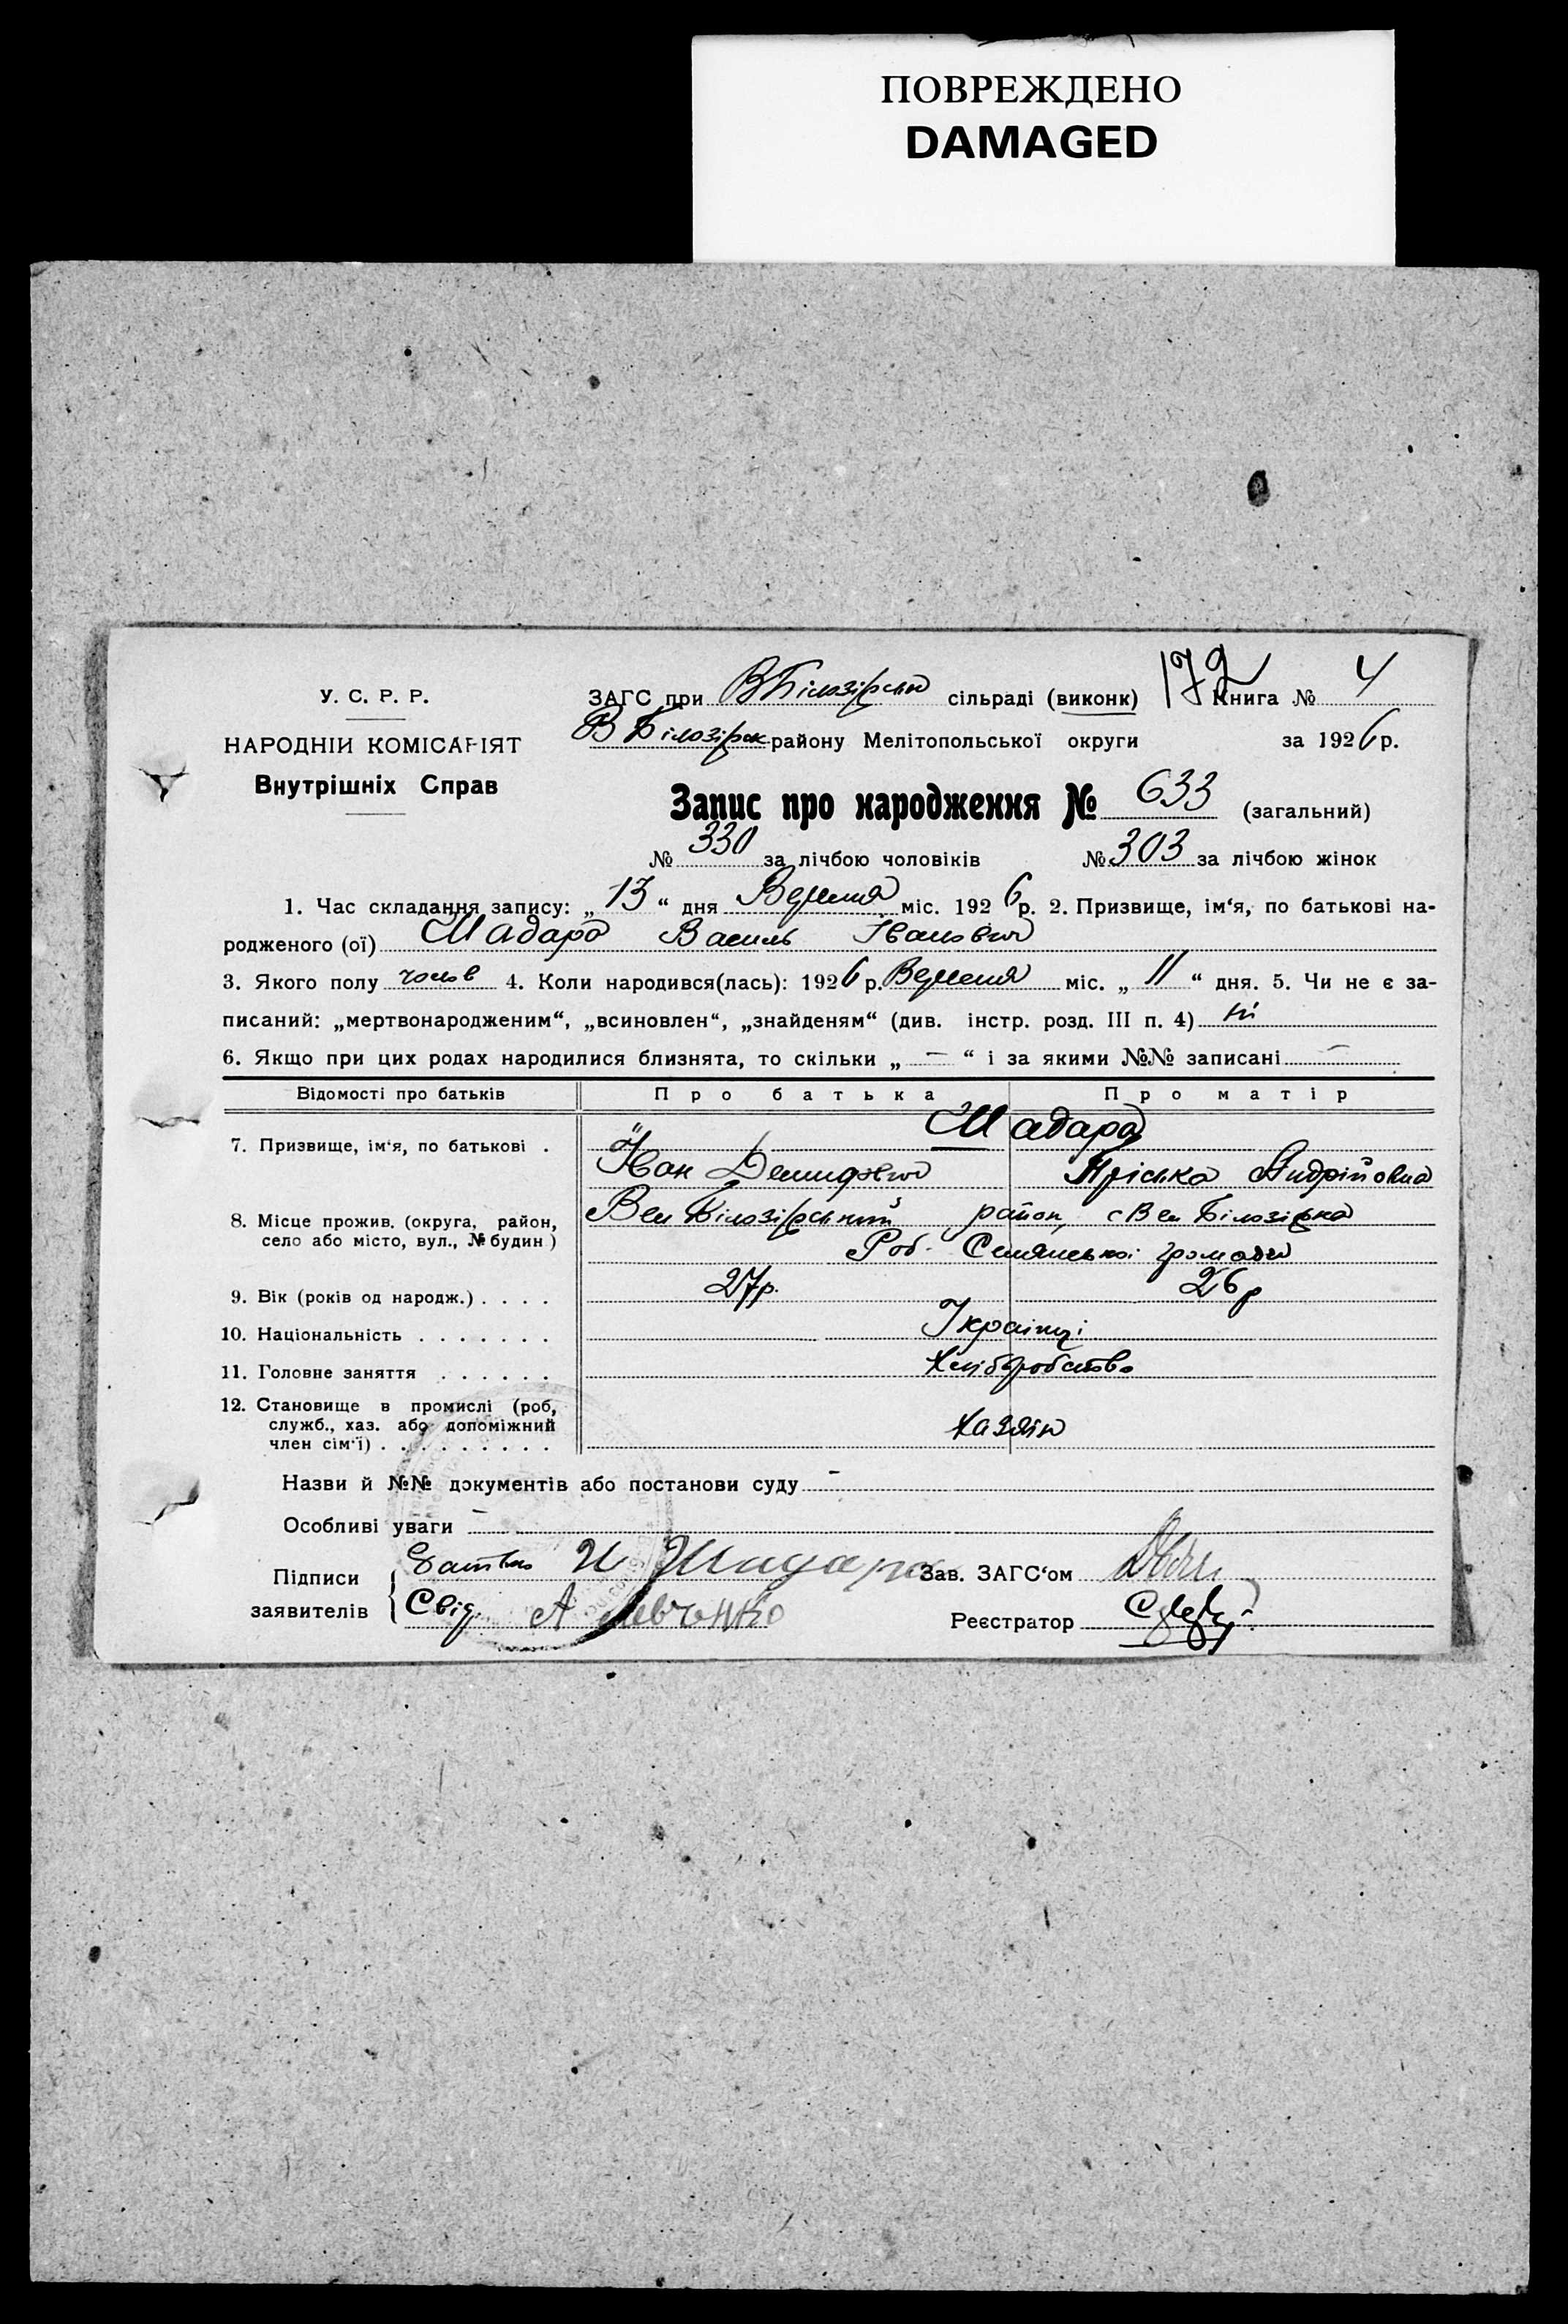 ПОВРЕЖДЕНО
DAMAGED
У. С. Р. Р.
НАРОДНІЙ КОМІСАРІЯТ
Внутрішніх Справ
ЗАГС при ВБілозірськ сільраді (виконк) 172 Книга № 4
В Білозірск району Мелітопольської округи за 1926 р.
Запис про народження № 633 (загальний)
№ 330 за лічбою чоловіків № 303 за лічбою жінок
1. Час складання запису: „ 13 “ дня Вересня міс. 1926 р. 2. Призвище, ім‘я, по батькові на-
родженого (ої) Шадура Василь Іванович
3. Якого полу чолов 4. Коли народився(лась): 1926 р. Вересня міс. „ 11 “ дня. 5. Чи не є за-
писаний: „мертвонародженим“, „всиновлен“, „знайденям“ (див. інстр. розд. III п. 4) ні
6. Якщо при цих родах народилися близнята, то скільки „ — “ і за якими №№ записані —
Відомості про батьків Про батька Про матір
Шадура
7. Призвище, ім‘я, по батькові .
Іван Демидович Пріська Андрійовна
8. Місце прожив. (округа, район, село або місто, вул., № будин)
Вел Білозірський район, с Вел Білозірка
Громади
9. Вік (років од народж.) . . . . 27р. 26р
10. Національність . . . . . . . Українці
11. Головне заняття . . . . . . Хліборобство
12. Становище в промислі (роб, служб., хаз. або допоміжний член сім‘ї) . . . . . . . . . . Хазяїн
Назви й №№ документів або постанови суду —
Особливі уваги —
Підписи заявителів { Батько И Шадура Зав. ЗАГС‘ом
Свід. А Левченко Реєстратор